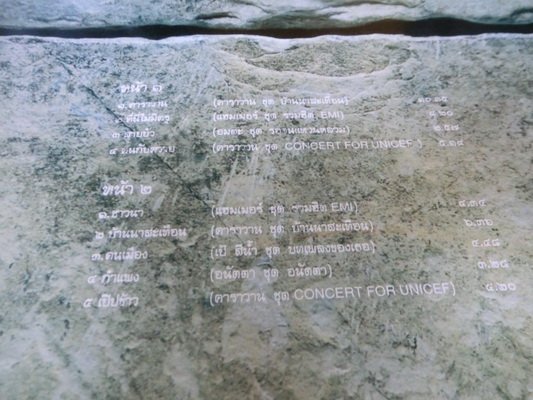 หน้า ๑
๑.คาราวาน (คาราวาน ชุด บ้านนาสะเทือน) ๑๐.๑๕
(แฮมเมอร์ ชุด รวมฮิต EMI)
๓ สายบัว ๒.๕๗
(คาราวาน ชุด CONCERT FOR UNICEF) ๕.๑๙
หน้า ๒
๑.ชาวนา (แฮมเมอร์ ชุด รวมฮิต EMI) ๔.๓๕
๒ บ้านนาสะเทือน (คาราวาน ชุด บ้านนาสะเทือน) ๒.๓๒
๓.คนเมือง (เป้ สีน้ำ ชุด บทเพลงของเธอ) ๔.๔๘
๔ กำแพง (อนัตตา ชุด อนัตตา) ๓.๒๕
๕ เปิบข้าว (คาราวาน ชุด CONCERT FOR UNICEF) ๔.๒๐